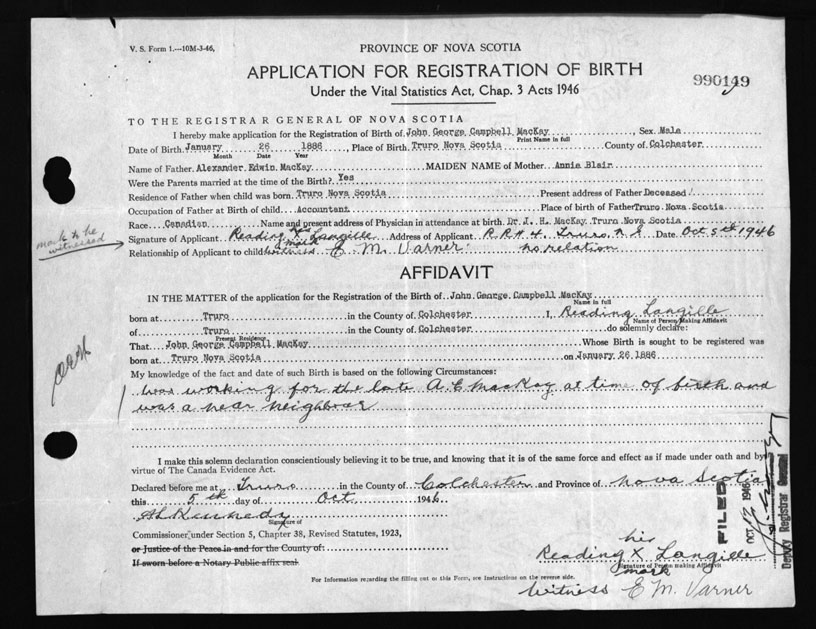 V. S. Form 1.—10M-3-46,
PROVINCE OF NOVA SCOTIA
APPLICATION FOR REGISTRATION OF BIRTH
990149
Under the Vital Statistics Act, Chap. 3 Acts 1946
TO THE REGISTRAR GENERAL OF NOVA SCOTIA
I hereby make application for the Registration of Birth of John George Campbell MacKay, Sex Male
Print Name in full
Date of Birth January 26 1886, Place of Birth Truro Nova Scotia County of Colchester
Month Date Year
Name of Father Alexander Edwin MacKay MAIDEN NAME of Mother Annie Blair
Were the Parents married at the time of the Birth? Yes
Residence of Father when child was born Truro Nova Scotia Present address of Father Deceased
Occupation of Father at Birth of child Accountant Place of birth of Father Truro Nova Scotia
Race Canadian Name and present address of Physician in attendance at birth Dr J. H. MacKay Truro Nova Scotia
mark to be witnessed
Signature of Applicant Reading his X mark Langille Address of Applicant R.R #4, Truro, N.S Date Oct 5th 1946
Relationship of Applicant to child witness E. M. Varner no relation
AFFIDAVIT
IN THE MATTER of the application for the Registration of Birth of John George Campbell MacKay
Name in full
born at Truro in the County of Colchester I, Reading Langille
Name of Person Making Affidavit
of Truro in the County of Colchester do solemnly declare:
Present Residence
That John George Campbell MacKay Whose Birth is sought to be registered was
born at Truro Nova Scotia on January 26 1886
My knowledge of the fact and date of such Birth is based on the following Circumstances:
was working for the late A. E. MacKay at time of birth and
was a near neighbour
I make this solemn declaration conscientiously believing it to be true, and knowing that it is of the same force and effect as if made under oath and by
virtue of The Canada Evidence Act.
Declared before me at Truro in the County of Colchester and Province of Nova Scotia
this 5th day of Oct 1946
Kennedy
Signature of
Commissioner, under Section 5, Chapter 38, Revised Statutes, 1923,
or Justice of the Peace in and for the County of:
If sworn before a Notary Public affix seal
his
Reading X Langille
Signature of Person making Affidavit
mark
For Information regarding the filling out of this Form, see Instructions on the reverse side.
Witness E. M. Varner
FILED
OCT 12 1946
Deputy Registrar General